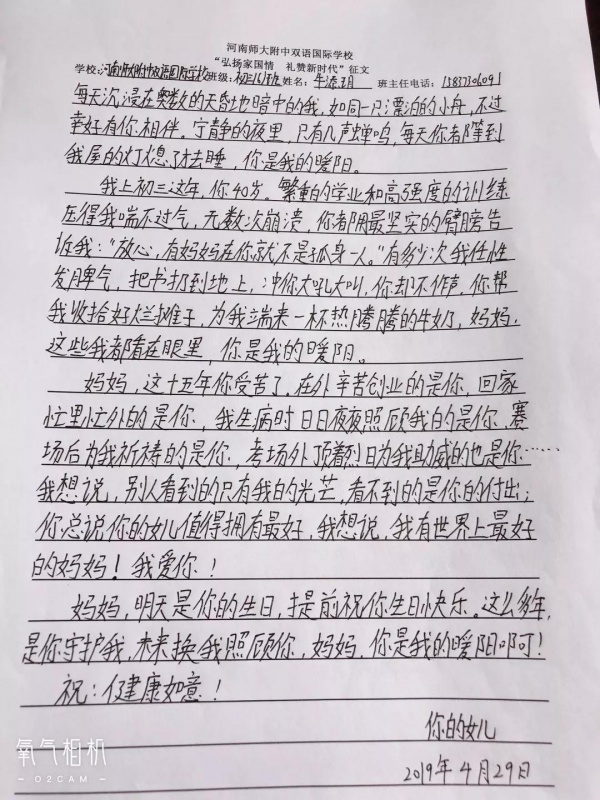 河南师大附中双语国际学校
“弘扬家国情 礼赞新时代”征文
学校:河南师大附中双语国际学校班级:初三16班姓名: 牛添玥 班主任电话: 15837306091
每天沉浸在奥数的天昏地暗中的我,如同一只漂泊的小舟,不过
幸好有你相伴。宁静的夜里,只有几声蝉鸣,每天你都等到
我屋的灯熄了才去睡,你是我的暖阳。
我上初三这年,你40岁。繁重的学业和高强度的训练
压得我喘不过气,无数次崩溃,你都用最坚实的臂膀告
诉我:“放心,有妈妈在你就不是孤身一人。”有多少次我任性
发脾气,把书扔到地上,冲你大吼大叫,你却不作声,你帮
我收拾好烂摊子,为我端来一杯热腾腾的牛奶,妈妈,
这些我都看在眼里,你是我的暖阳。
妈妈,这十五年你受苦了。在外辛苦创业的是你,回家
忙里忙外的是你,我生病时日日夜夜照顾我的是你,赛
场后为我祈祷的是你,考场外顶着烈日为我助威的也是你……
我想说,别人看到的只有我的光芒,看不到的是你的付出;
你总说你的女儿值得拥有最好,我想说,我有世界上最好
的妈妈!我爱你!
妈妈,明天是你的生日,提前祝你生日快乐。这么多年,
是你守护我,未来换我照顾你,妈妈,你是我的暖阳啊!
祝:健康如意!
你的女儿
2019年4月29日
氧气相机
O2CAM